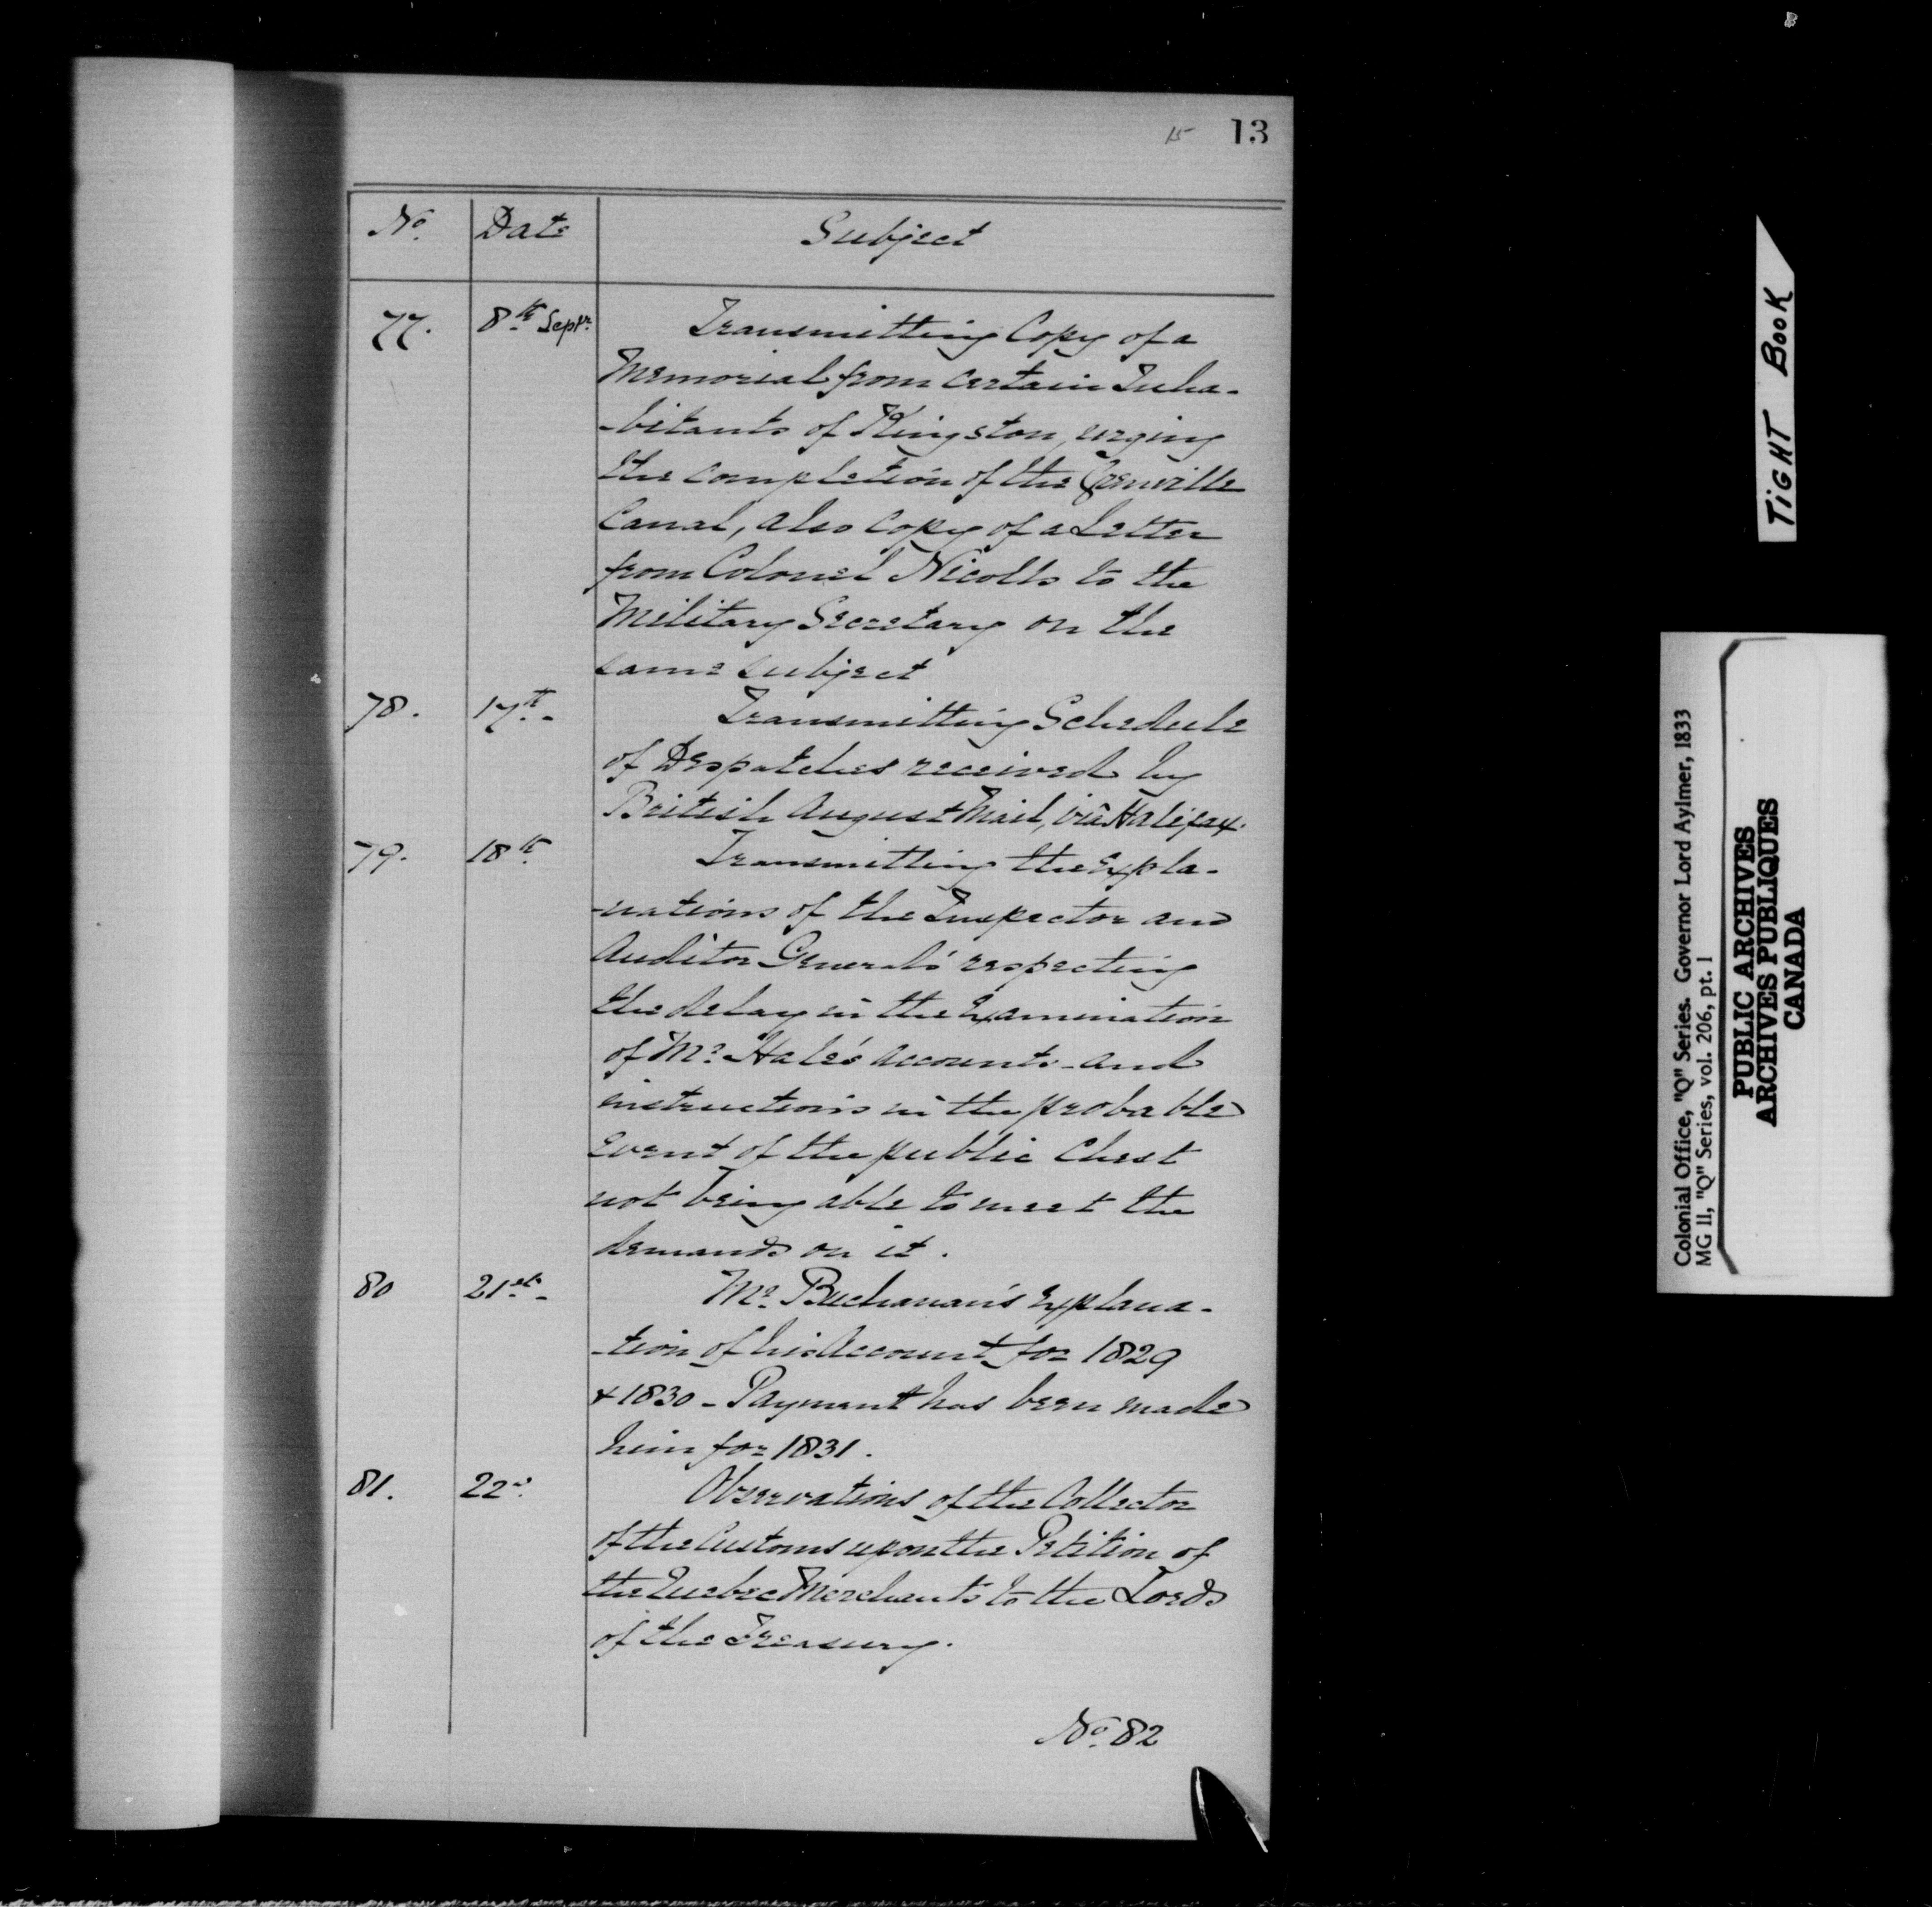 15 13
No. Date Subject
77. 8th Septr. Transmitting Copy of a
Memorial from certain Inha-
-bitants of Kingston, urging
the completion of the Grenville
Canal, also copy of a Letter
from Colonel Nicolls to the
Military Secretary on the
same subject
78. 17th- Transmitting Schedule
of Despatches received by
British August Mail, viâ Halifax.
79. 18th Transmitting the Expla-
-nations of the Inspector and
Auditor Generals' respecting
the delay in the Examination
of Mr. Hale's Accounts- and
instructions in the probable
event of the public Chest
not being able to meet the
demands on it.
80 21st- Mr. Buchanan's Explana-
-tion of his Account for 1829
& 1830 - Payment has been made
him for 1831.
81. 22d. Observations of the Collector
of the Customs upon the Petition of
the Quebec Merchants to the Lords
of the Treasury.
No. 82
TIGHT BOOK
Colonial Office, "Q" Series. Governor Lord Aylmer, 1833
MG 11, "Q" Series, vol. 206, pt. 1
PUBLIC ARCHIVES
ARCHIVES PUBLIQUES
CANADA